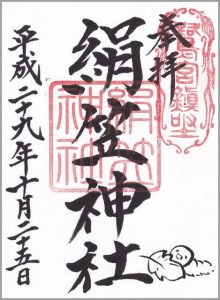 奉拝
絹笠神社
平成二十九年十月二十五日